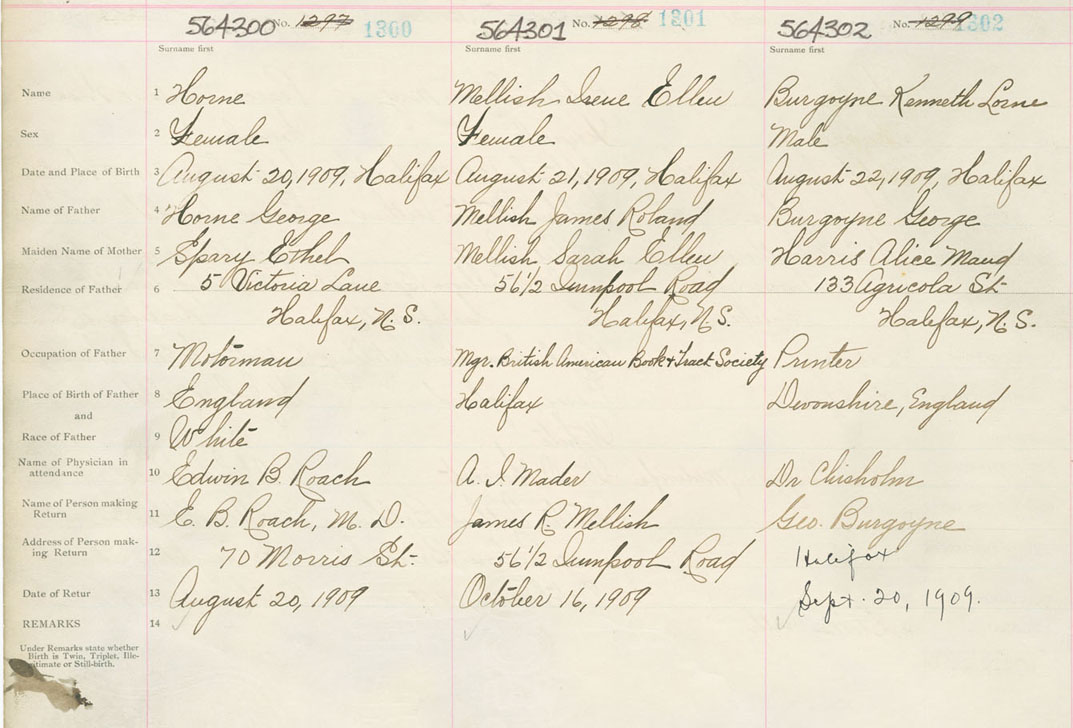 564300 No. 1297 1300 564301 No. 1298 1301 564302 No. 1299 1302
Surname first Surname first Surname first
Name 1 Horne Mellish Irene Ellen Burgoyne Kenneth Lorne
Sex 2 Female Female Male
Date and Place of Birth 3 August 20, 1909, Halifax August 21, 1909, Halifax August 22, 1909, Halifax
Name of Father 4 Horne George Mellish James Roland Burgoyne George
Maiden Name of Mother 5 Spary Ethel Mellish Sarah Ellen Harris Alice Maud
Residence of Father 6 5 Victoria Lane 56 1/2 Road 133 Agricola St.
Halifax, N.S. Halifax, N.S. Halifax, N.S.
Occupation of Father 7 Motorman Mgr. British American Book + Tract Society Printer
Place of Birth of Father 8 England Halifax Devonshire, England
and
Race of Father 9 White
Name of Physician in
attendance 10 Edwin B. Roach A. I. Mader Dr Chisholm
Name of Person making
Return 11 E. B. Roach, M. D. James R. Mellish Geo. Burgoyne
Address of Person mak-
ing Return 12 70 Morris St. 56 1/2 Road Halifax
Date of Retur 13 August 20, 1909 October 16, 1909 Sept. 20, 1909.
REMARKS 14
Under Remarks state whether
Birth is Twin, Triplet, Ille-
gitimate or Still-birth.